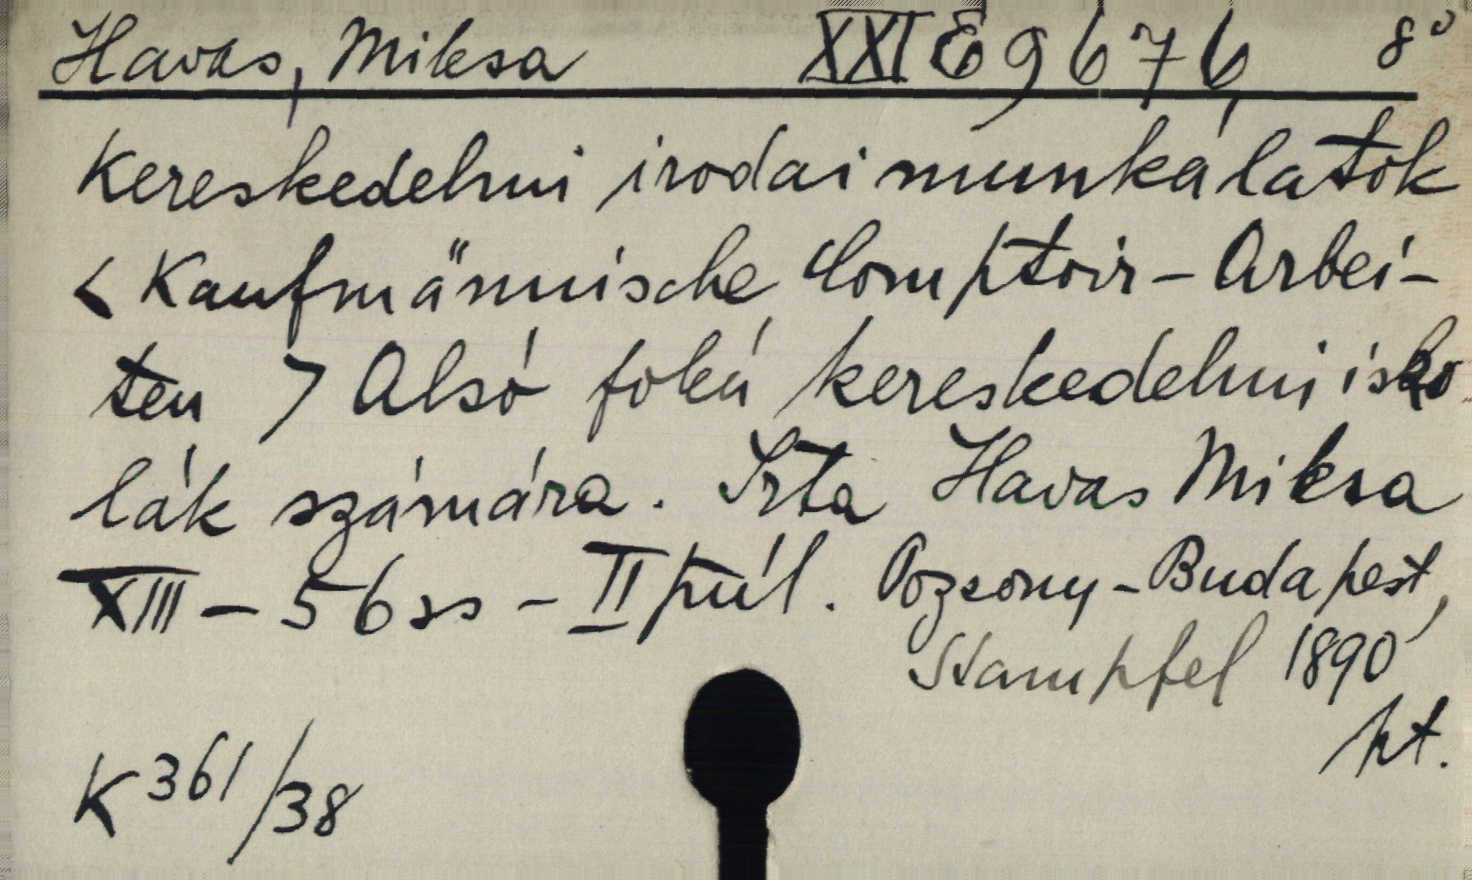 Havas, Miksa XXI E 9676 8°
Kereskedelmi irodai munkálatok
< Kaufmännische Comptoir-Arbei-
ten > Alsó fokú kereskedelmi isko
lák számára. Irta Havas Miksa
XIII - 56 ss - II púl. Pozsony-Budapest,
Stampfel 1890
kt.
K 361/38